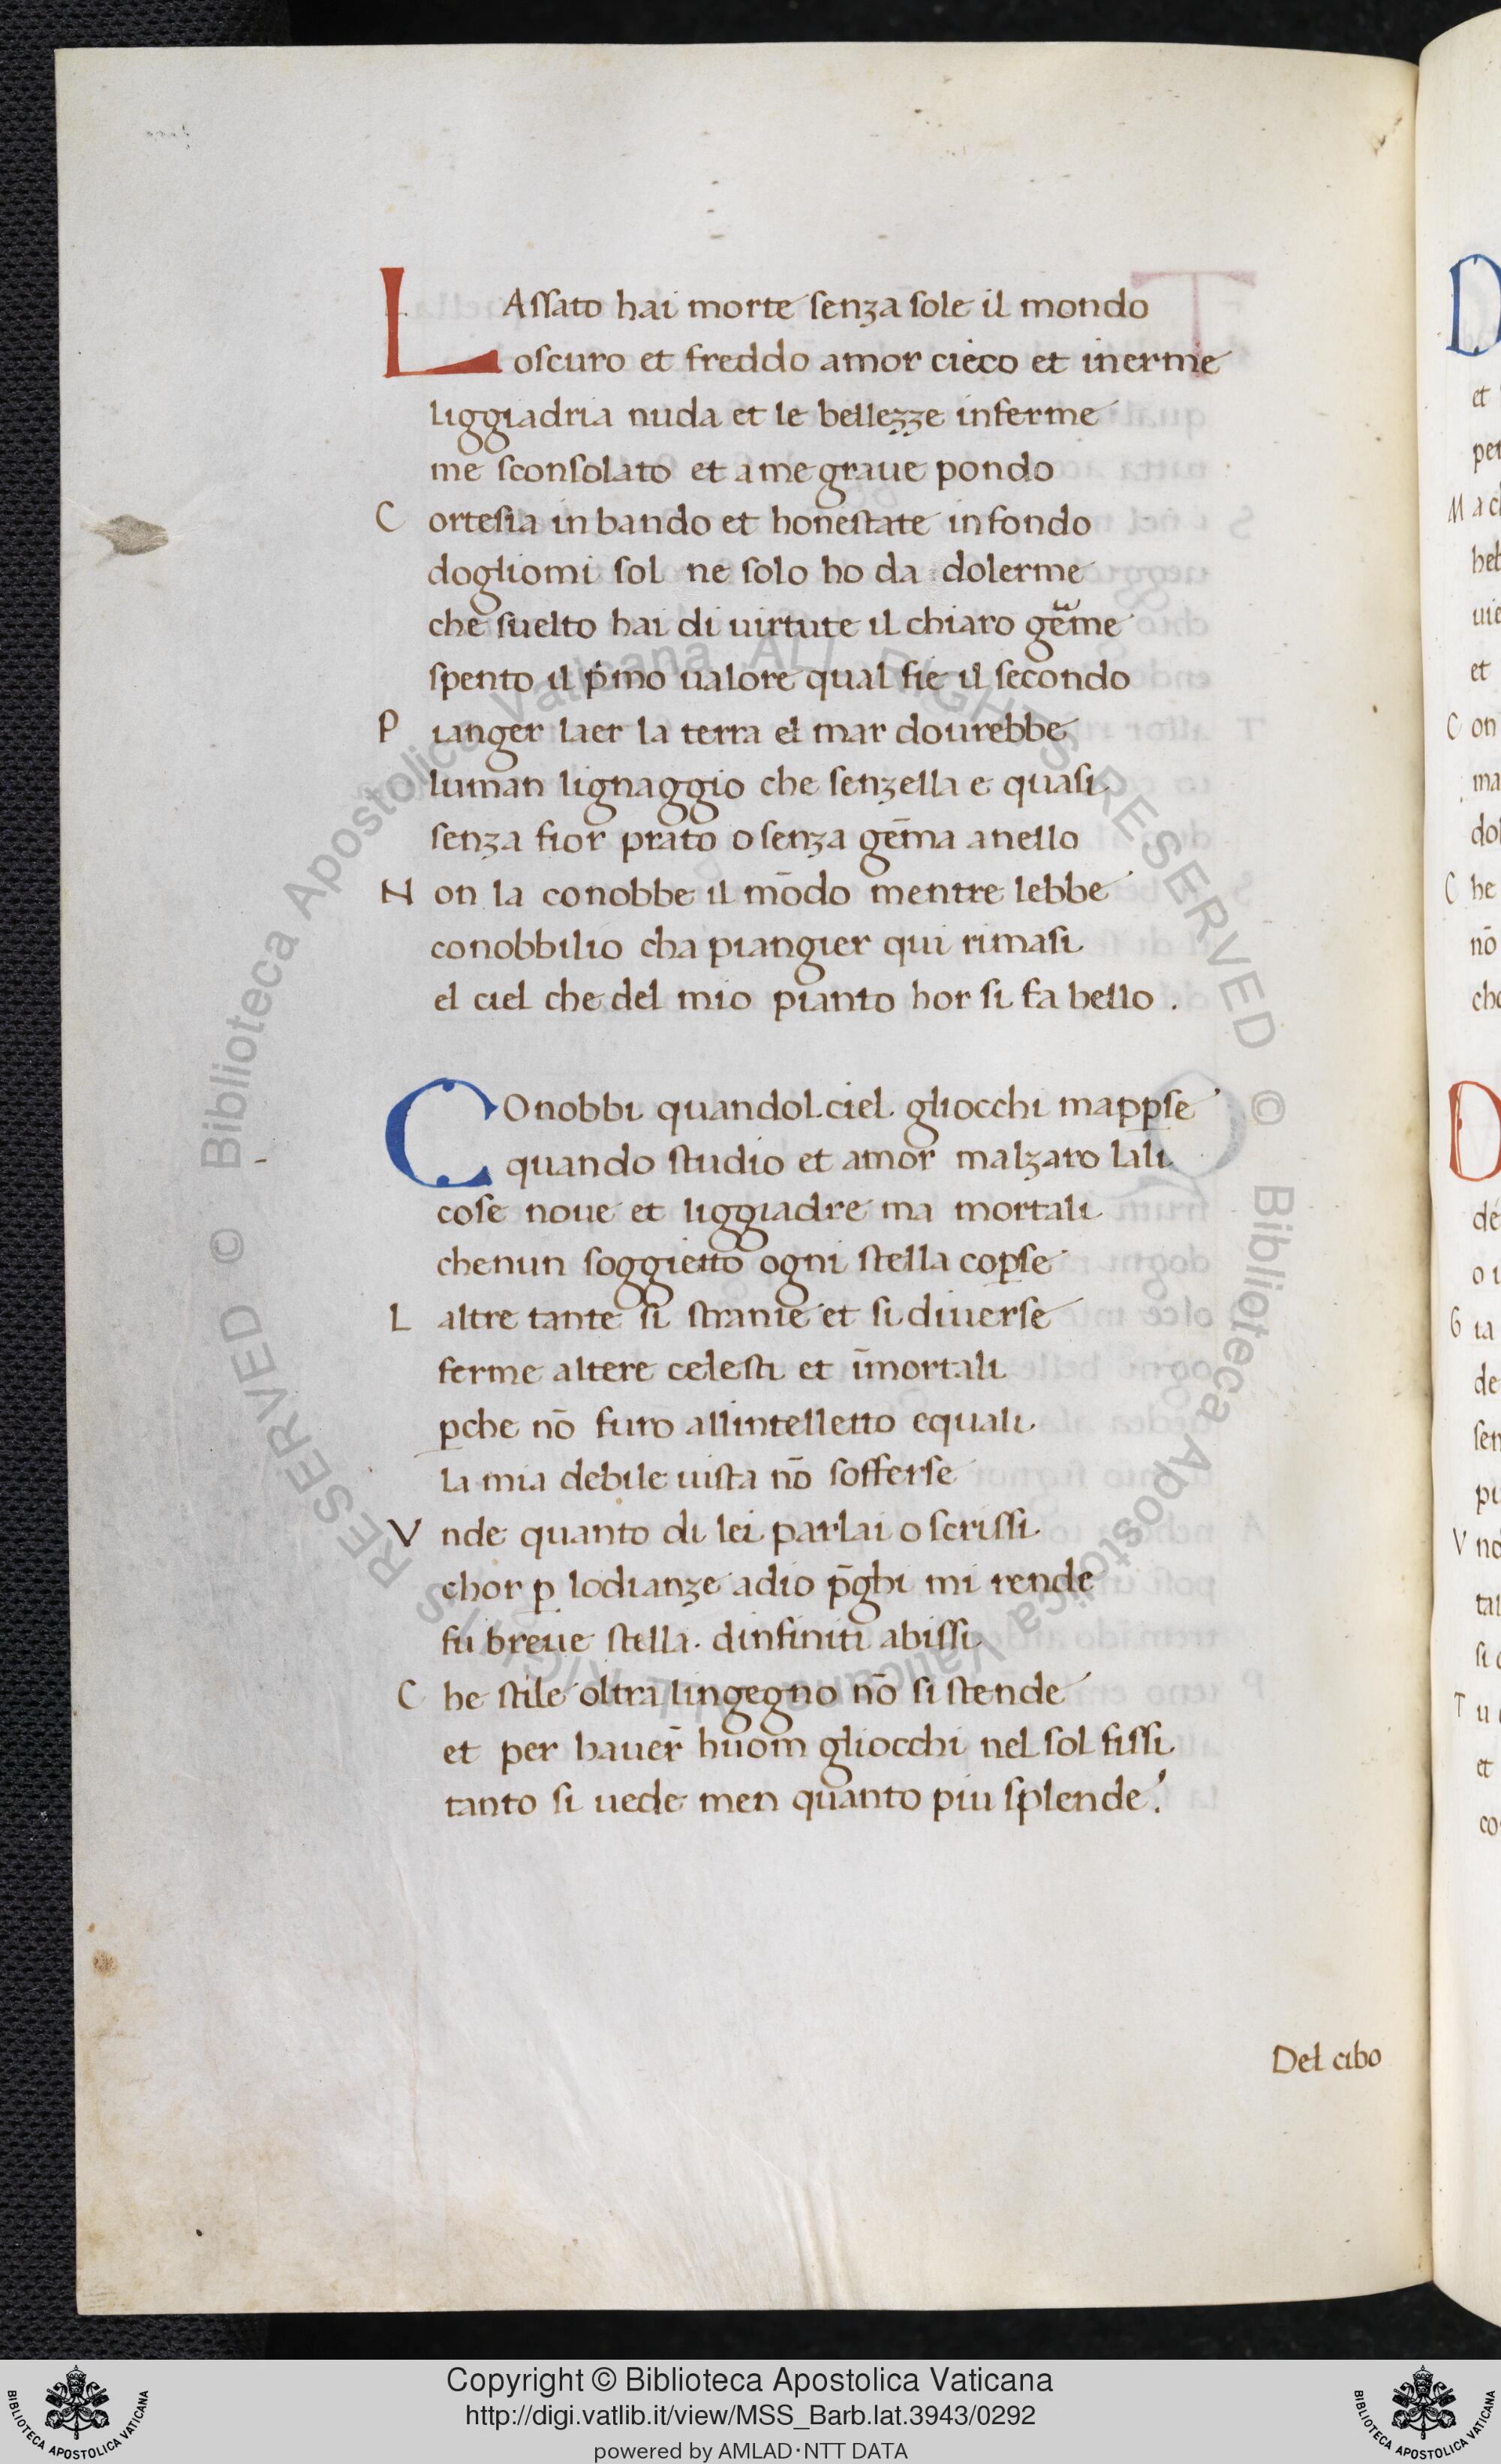 LAssato hai morte senza sole il mondo
oscuro et freddo amor cieco et inerme
liggiadria nuda et le bellezze inferme
me sconsolato et a me graue pondo
Cortesia in bando et honestate in fondo
dogliomi sol ne solo ho da dolerme
che suelto hai di uirtute il chiaro geme
spento il pͥmo ualore qual fie il secondo
Pianger laer la terra el mar dourebbe
luman lignaggio che senzella e quasi
senza fior prato o senza gem̄a anello
Non la conobbe il mōdo mentre lebbe
conobbilio cha piangier qui rimasi
el ciel che del mio pianto hor si fa bello .
COnobbi quandol ciel gliocchi map̲se
quando studio et amor malzaro lali
cose noue et liggiadre ma mortali
chenun soggietto ogni stella cop̲se
Laltre tante si stranie et si diuerse
ferme altere celesti et im̄ortali
p̲che nō furo allintelletto equali
la mia debile uista nō sofferse
Vnde quanto di lei parlai o scrissi
chor p̲ lodianze adio p̄ghi mi rende
fu breue stella dinfiniti abissi
Che stile oltra lingegno nō si stende
et per hauer̄ huom gliocchi nel sol fissi
tanto si uede men quanto piu splende.
Del cibo
D
et
pet
M ac
heb
uie
et
C on
ma
dol
C he
nō
che
D
de
o u
G ia
de
sen
pu
V no
tal
si
T u
et
co
© Biblioteca Apostolica Vaticana ALL RIGHTS RESERVED © Biblioteca Apostolica Vaticana ALL RIGHTS RESERVED
Copyright © Biblioteca Apostolica Vaticana
http://digi.vatlib.it/view/MSS_Barb.lat.3943/0292
powered by AMLAD·NTT DATA
BIBLIOTECA APOSTOLICA VATICANA
BIBLIOTECA APOSTOLICA VATICANA